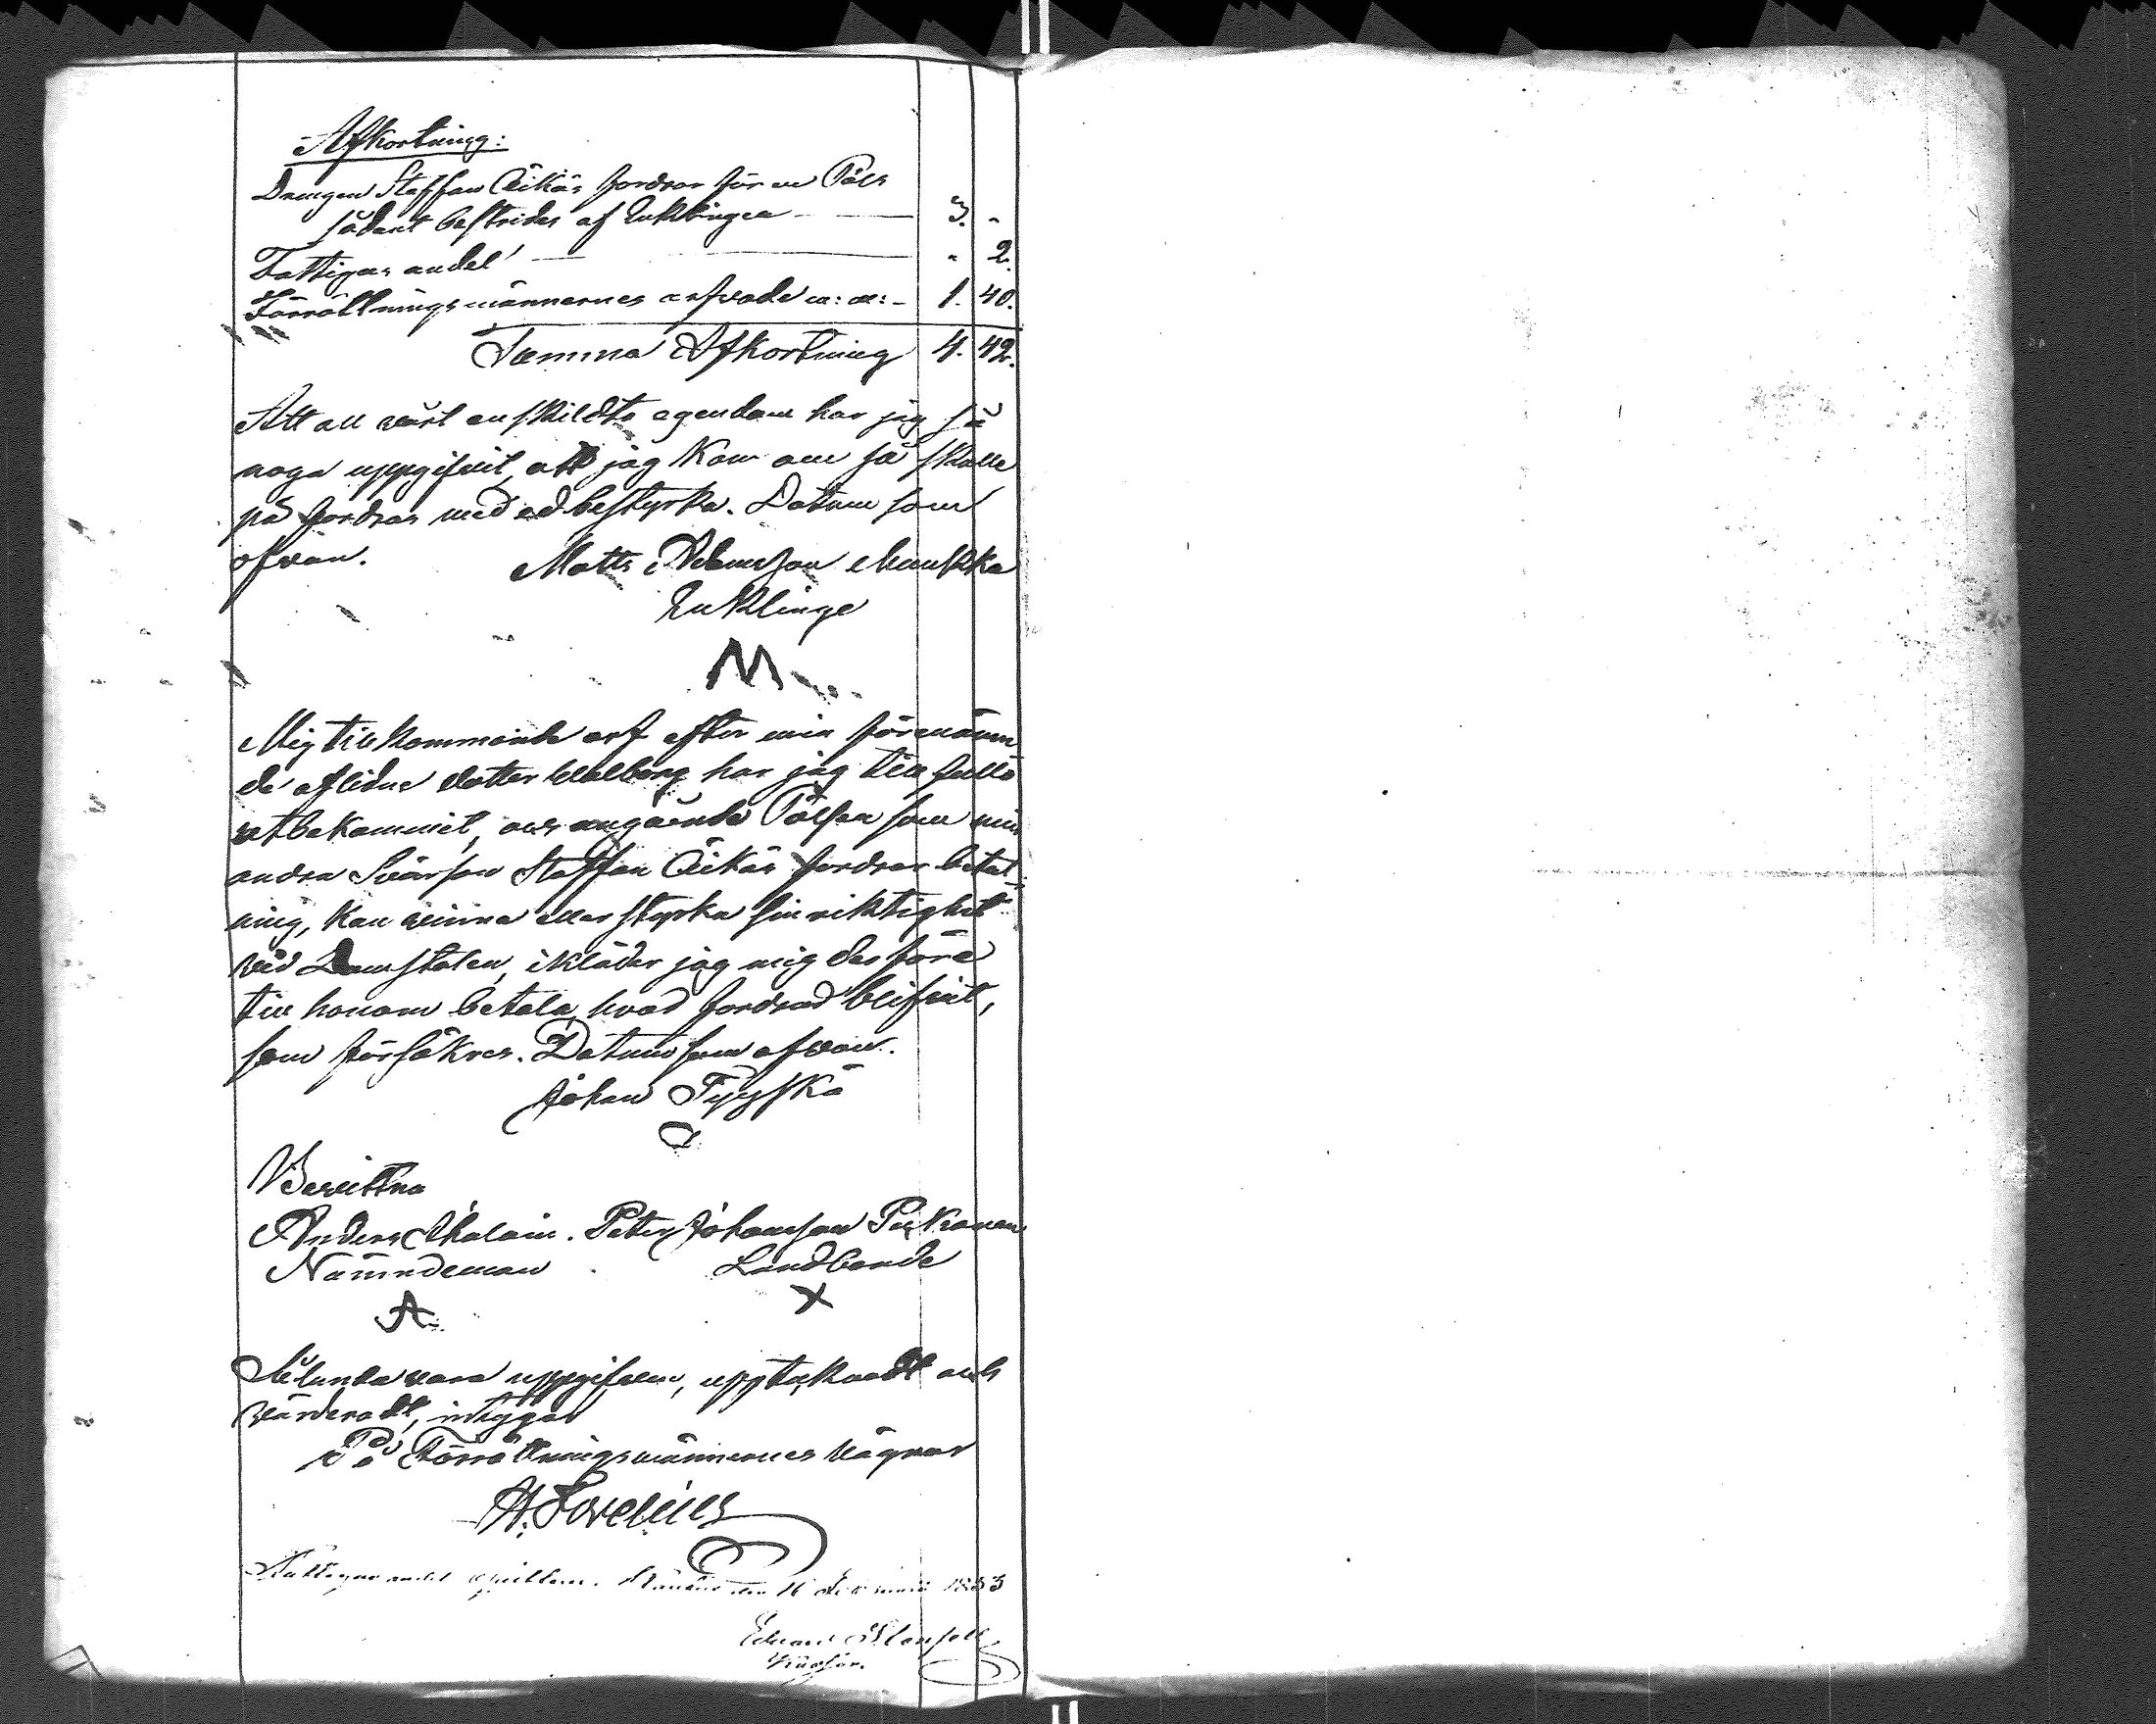 Afkortning:
Drengen Staffan Äikäs fordrar för en Päls
sådant bestrides af Enklingen 3. -
Fattigas andel " 2.
Förrättningsmännernes arfvode m: m: 1. 40.
Summa Afkortning 4. 42.
Att all vårt enskildta egendom har jag så
noga uppgifvit, att jag kan om så skulle
på fordras med ed bestyrka. Datum som
ofvan. Matts Adamsson
Enklinge
M
Mig tillkommande arf efter min förenämn
de aflidne dotter Walborg har jag till fullo
utbekommit, och angående Pälsen som min
andra Svärson Staffan Äikäs fordrar betal
ning, kan vinna eller styrka sin riktighet
vid Domstolen, ikläder jag mig derföre
till honom betala hvad fordrad blifvit,
som försäkras. Datum som ofvan.
Johan Tyyskä
Bevittna
Anders Ikalain. Petter Johansson
Nämndeman Landbonde
A X
Sålunda vara uppgifvem, upptecknadt och
värderadt, intygar
På Förrättningsmännernes vägnar
Fattigas andel qvitteras. den 16 1833